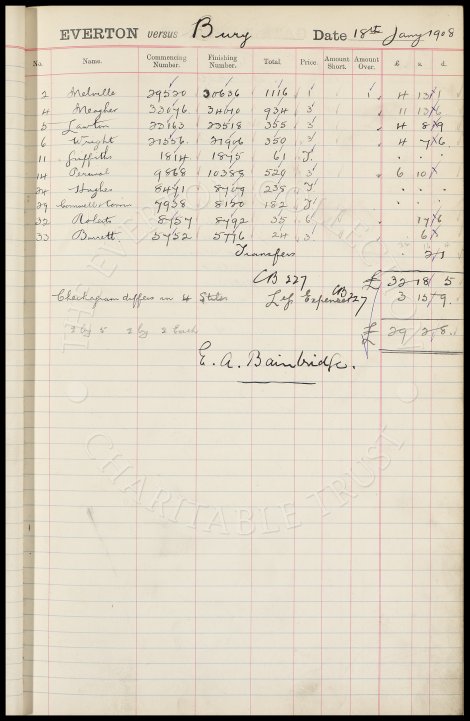 EVERTON versus Bury Date 18th Jany 1908
No. Name. Commencing Number. Finishing Number. Total. Price. Amount Short. Amount Over. £ s. d.
2 Melville 29520 30636 1116 1 4 13 1
4 Meagher 33076 34010 934 3 11 13 6
5 Lawton 23163 23518 355 3 4 8 9
6 Wright 21556 21906 350 3 4 7 6
11 Griffiths 1814 1875 61 J . . .
14 9868 10388 520 3 6 10 .
24 Hughes 8471 8709 238 J . . .
29 7938 8120 182 J . . .
32 Roberts 8757 8792 35 6 17 6
33 Barrett 5752 5776 24 3 6 .
Transfers 2 1
CB 227 £ 32 18 5
differs in 4 States Less Expenses CB 227 3 15 9
3 by 5 2 by 2 Each £ 29 2 8.
E. A. Bainbridge.
THE EVERTON COLLECTION
CHARITABLE TRUST